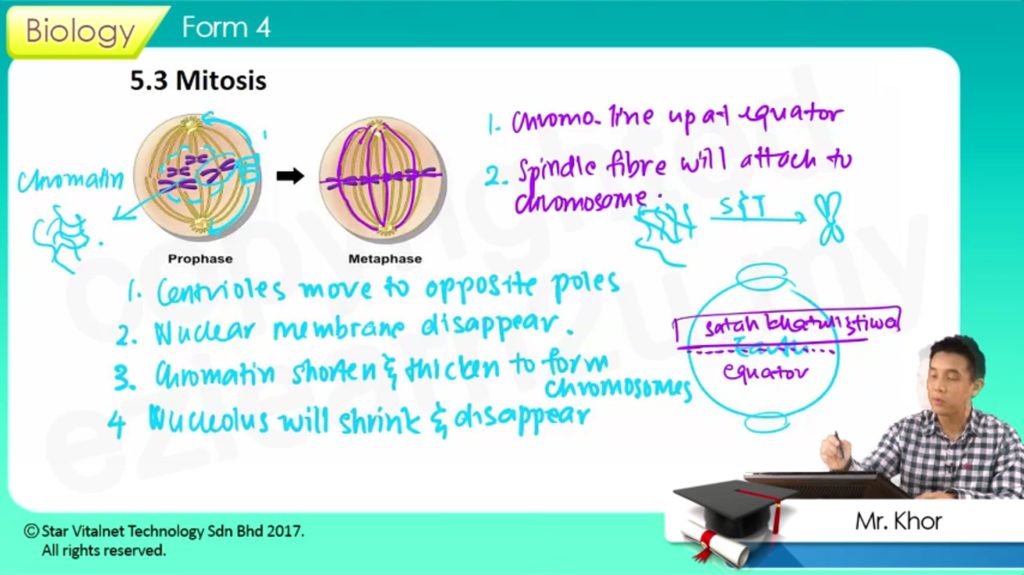 Biology
Form 4
5.3 Mitosis
Chromatin
Prophase
Metaphase
1. Chromo. line up at equator
2. Spindle fibre will attach to
chromosome.
S & T
1. Centrioles move to opposite poles
2. Nuclear membrane disappear.
3. Chromatin shorten & thicken to form
chromosomes
4 Nucleolus will shrink & disappear
satah khatulistiwa
Earth
equator
copyrighted
ezlearn2u.my
Mr. Khor
© Star Vitalnet Technology Sdn Bhd 2017.
All rights reserved.